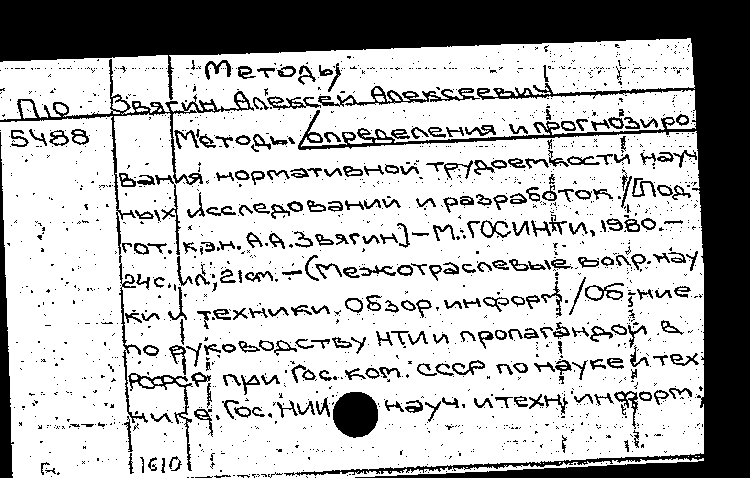 Методы
П10 Звягин, Алексей Алексеевич
5488 Методы определения и прогнозиро-
вания нормативной трудоемкости науч-
ных исследований и разработок / [Под-
гот. к.э.н. А.А. Звягин] – М.: ГОСИНТИ, 1980. –
24 с., ил.; 21 см. – (Межотраслевые вопр. нау-
ки и техники. Обзор. информ. / Об-ние
по руководству НТИ и пропагандой в
РСФСР при Гос. ком. СССР по науке и тех-
нике. Гос. НИИ науч. и техн. информ.;
1610